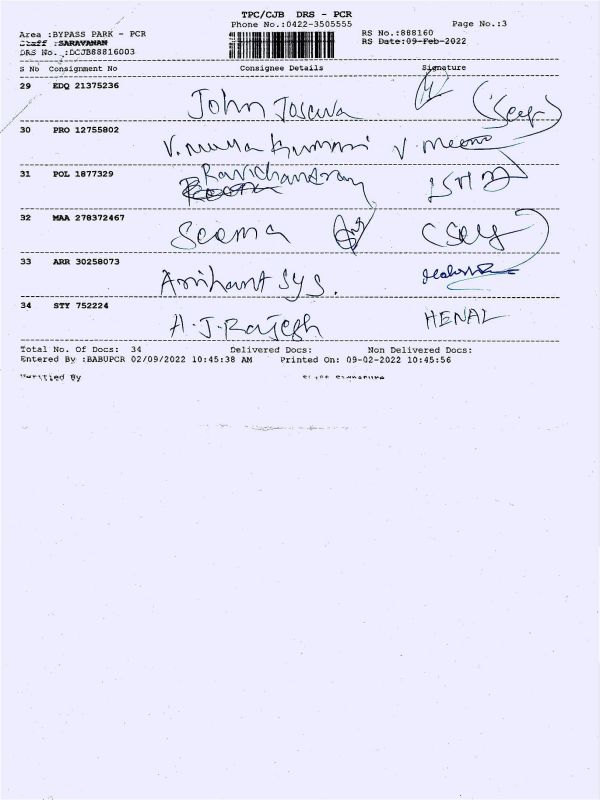 TPC/CJB DRS - PCR
Phone No.:0422-3505555 Page No.:3
Area :BYPASS PARK - PCR RS No.:888160
Staff :SARAVANAN RS Date:09-Feb-2022
DRS No. :DCJB88816003
S No Consignment No Consignee Details Signature
29 EDQ 21375236
John Joseva
30 PRO 12755802
V. Kumari V. Meena
31 POL 1877329
Ravichandran
32 MAA 278372467
Seema
33 ARR 30258073
Arrihant Sys.
34 STY 752224
A.J.Rajesh HENAL
Total No. Of Docs: 34 Delivered Docs: Non Delivered Docs:
Entered By :BABUPCR 02/09/2022 10:45:38 AM Printed On: 09-02-2022 10:45:56
Verified By Signature